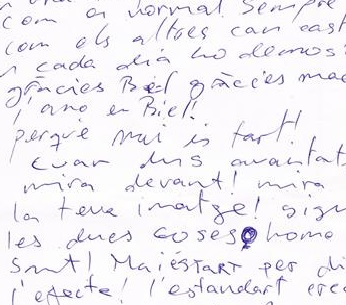 com a normal sempre
com els altres can cast
cada dia ho demos
gràcies Biel gràcies mae
i ano en Biel!
perquè mai is tart!
cuan dus avantat
mira devant! mira
la teva imatge! sign
les dues coses homo
sant! Maiestart per di
l'efecte! l'estandart crea